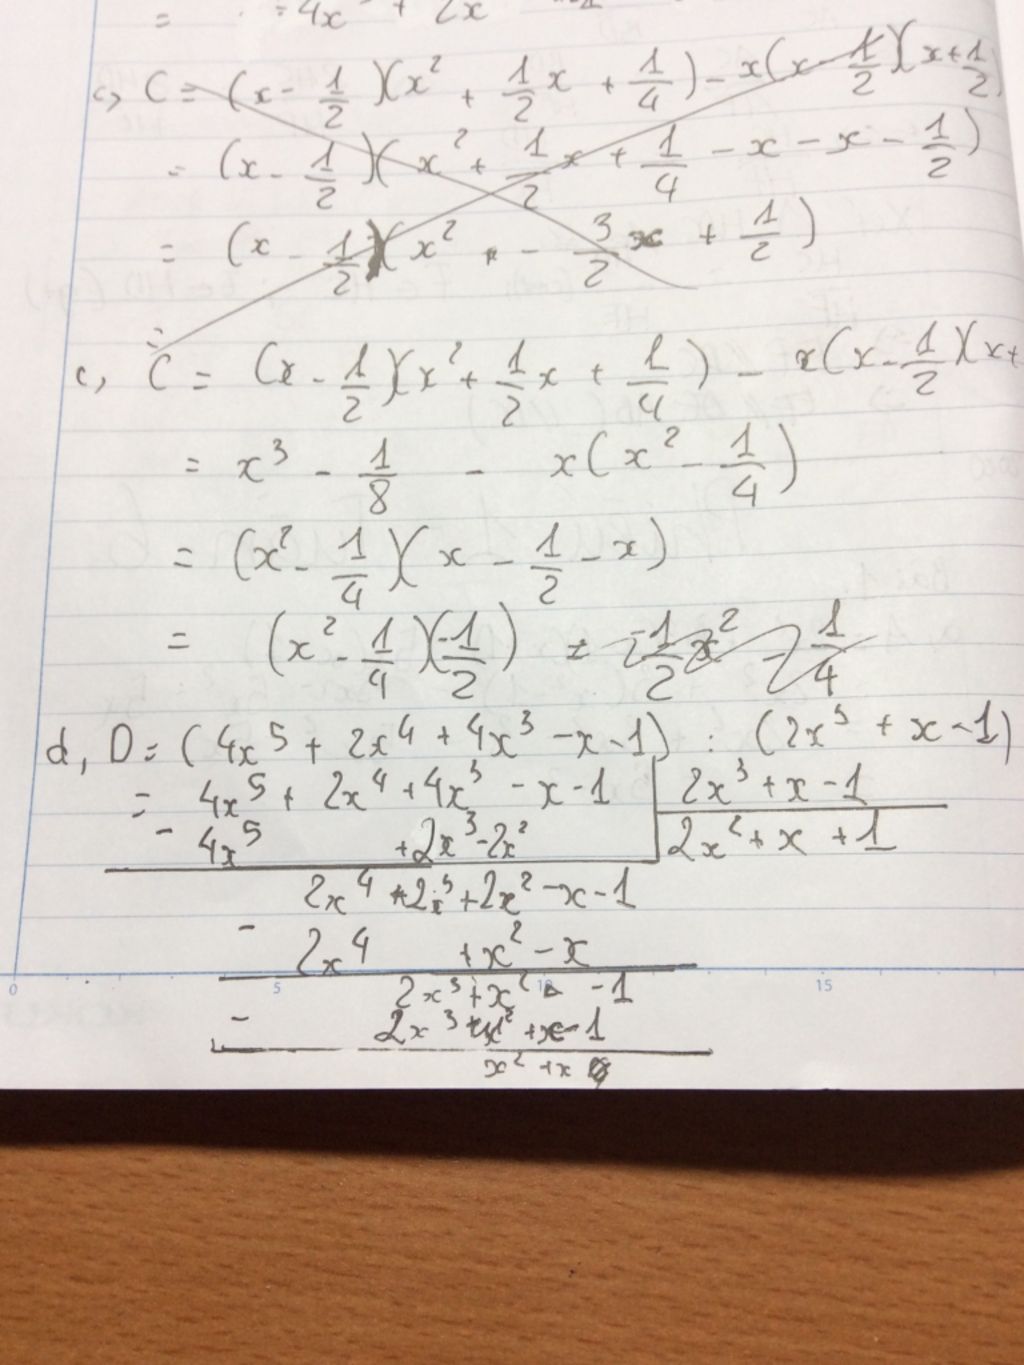 = 4x + 2x
c, C = (x - 1/2)(x² + 1/2 x + 1/4) - x(x - 1/2)(x + 1/2)
= (x - 1/2)(x² + 1/2 x + 1/4 - x - x - 1/2)
= (x - 1/2)(x² - 3/2 x + 1/2)
=
c, C = (x - 1/2)(x² + 1/2 x + 1/4) - x(x - 1/2)(x+
= x³ - 1/8 - x(x² - 1/4)
= (x² - 1/4)(x - 1/2 - x)
= (x² - 1/4)(-1/2) = -1/2 x² - 1/4
d, D = (4x⁵ + 2x⁴ + 4x³ - x - 1) : (2x³ + x - 1)
= 4x⁵ + 2x⁴ + 4x³ - x - 1 2x³ + x - 1
- 4x⁵ + 2x³ - 2x² 2x² + x + 1
2x⁴ + 2x³ + 2x² - x - 1
- 2x⁴ + x² - x
0 5 10 15
2x³ + x² - 1
- 2x³ + x - 1
x² + x